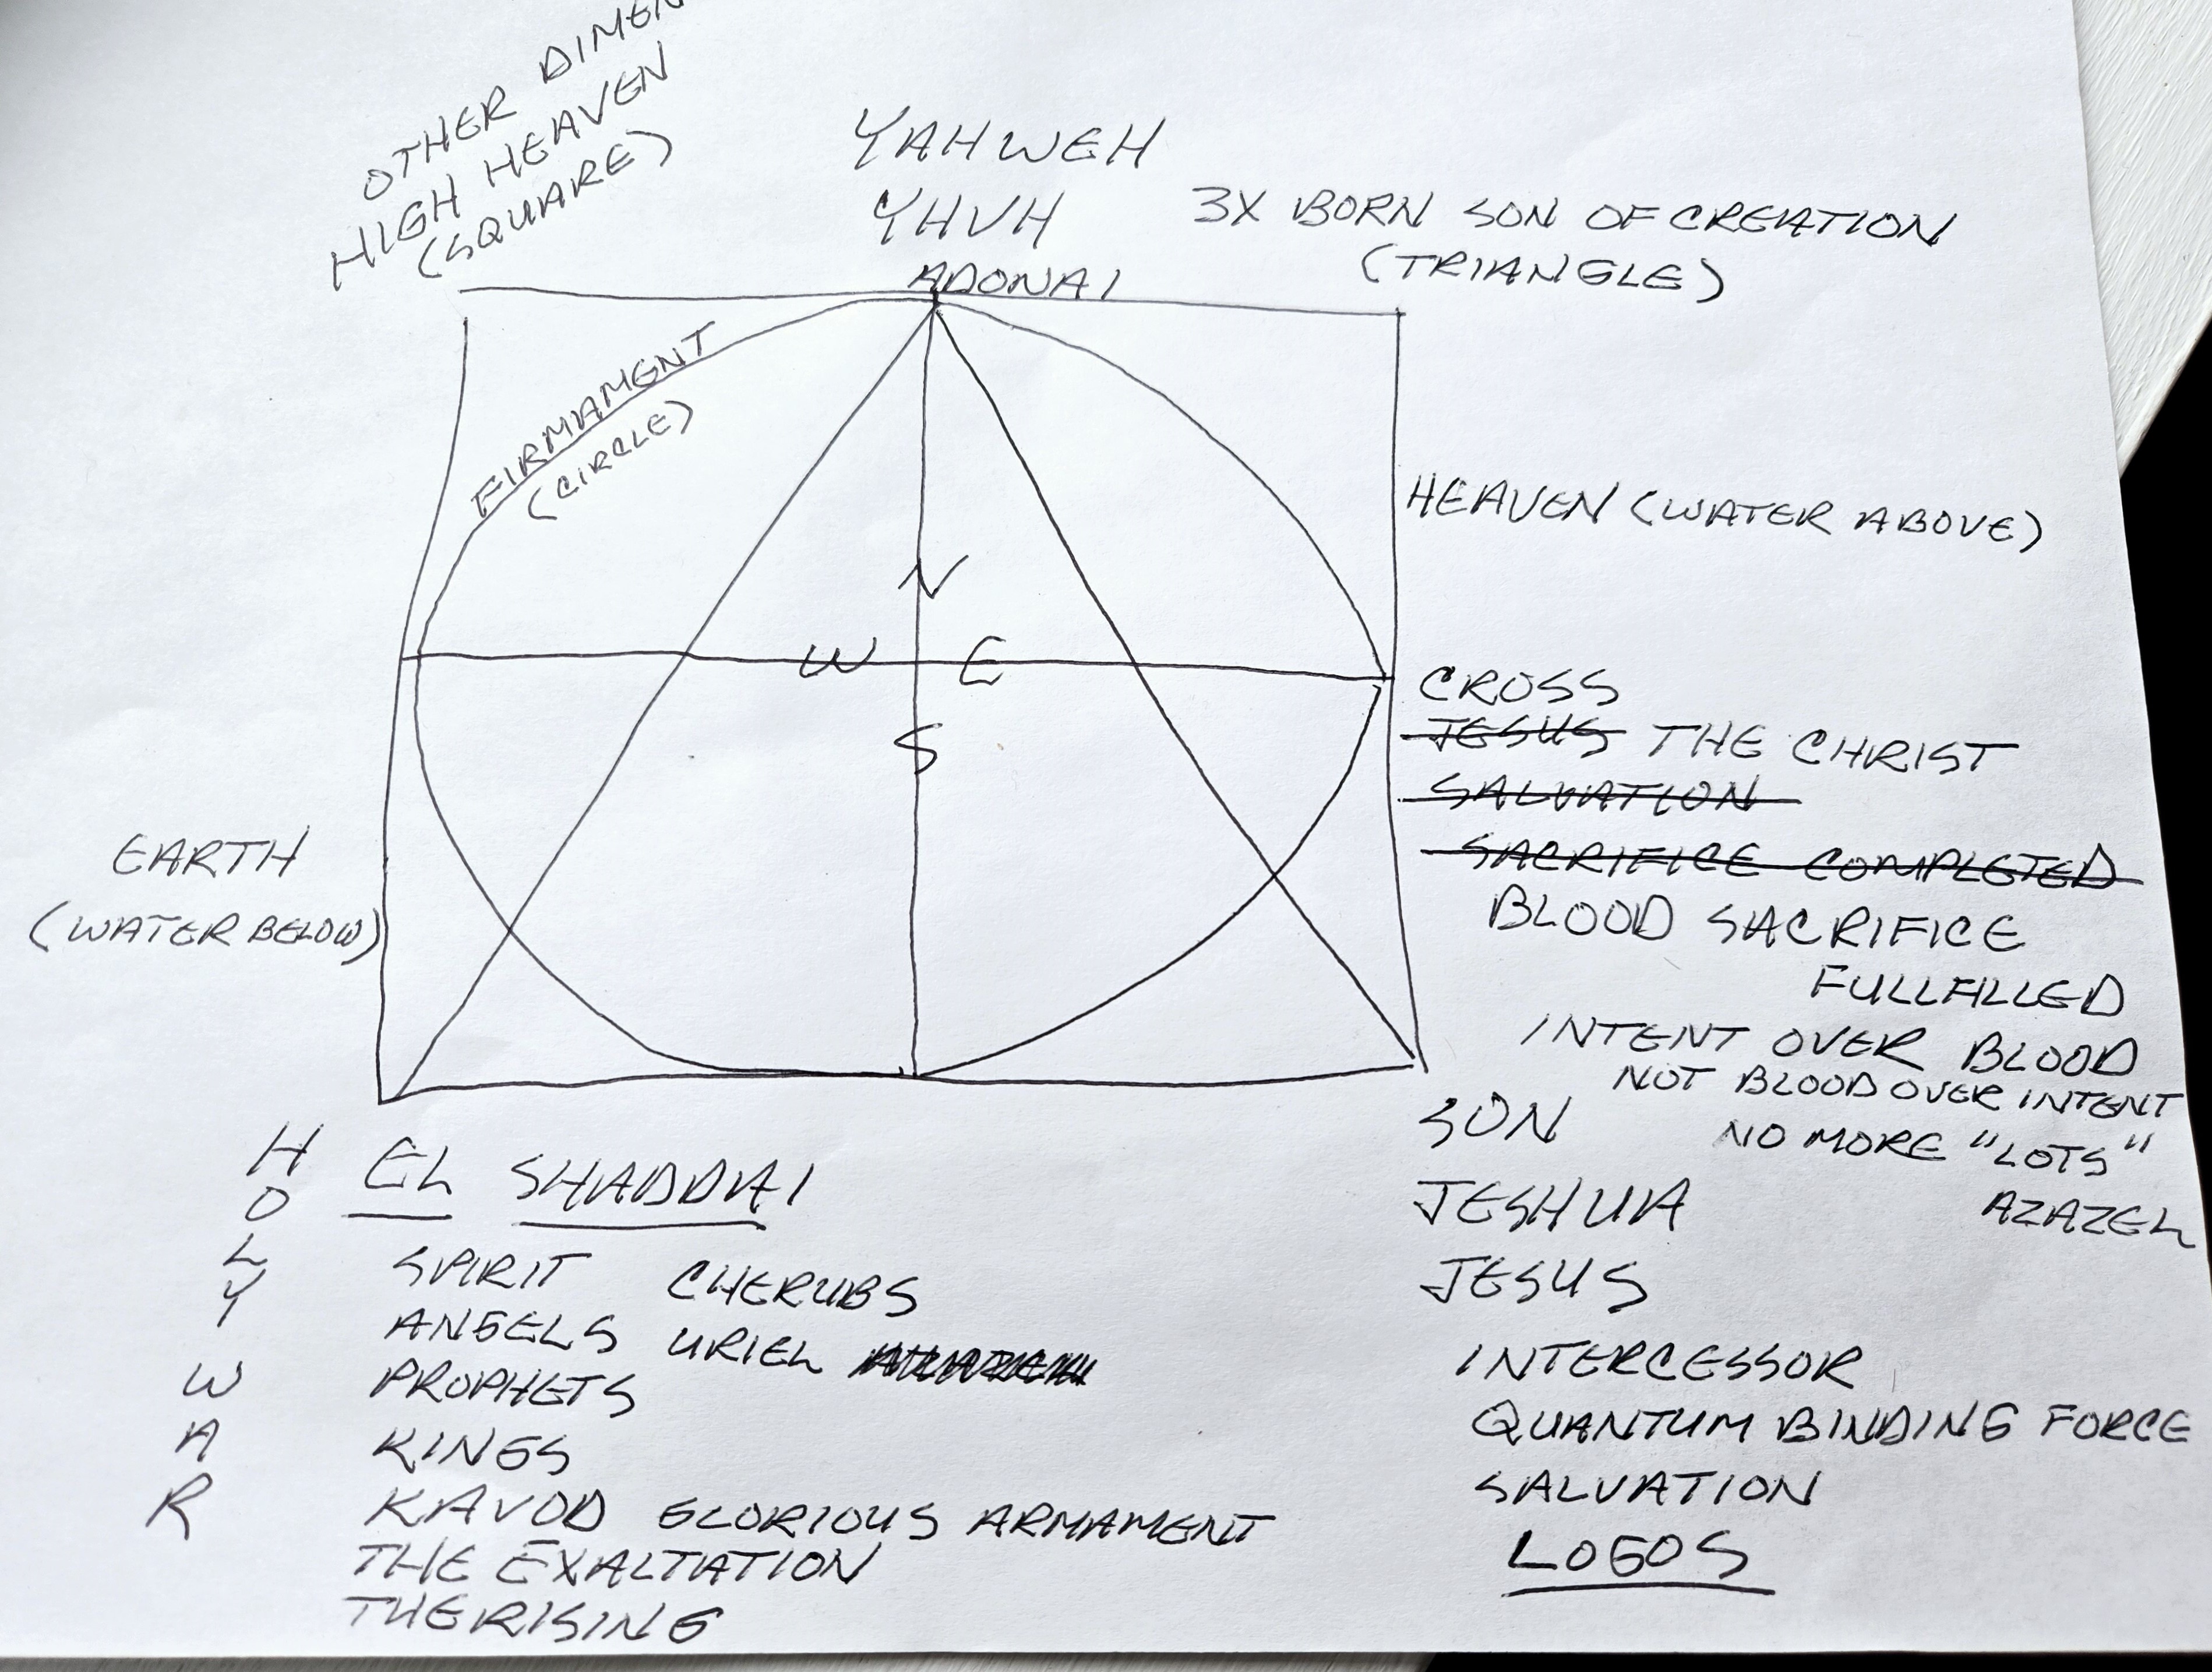 OTHER
HIGH HEAVEN
(SQUARE)
YAHWEH
YHVH
ADONAI
3X BORN SON OF CREATION
(TRIANGLE)
FIRMAMENT
(CIRCLE)
HEAVEN (WATER ABOVE)
N
W E
S
EARTH
(WATER BELOW)
CROSS
JESUS THE CHRIST
SALVATION
SACRIFICE COMPLETED
BLOOD SACRIFICE
FULLFILLED
INTENT OVER BLOOD
NOT BLOOD OVER INTENT
NO MORE "LOTS"
AZAZEL
H
O
L
Y
W
A
R
EL SHADDAI
SPIRIT CHERUBS
ANGELS URIEL
PROPHETS
KINGS
KAVOD GLORIOUS ARMAMENT
THE EXALTATION
THE RISING
SON
JESHUA
JESUS
INTERCESSOR
QUANTUM BINDING FORCE
SALVATION
LOGOS